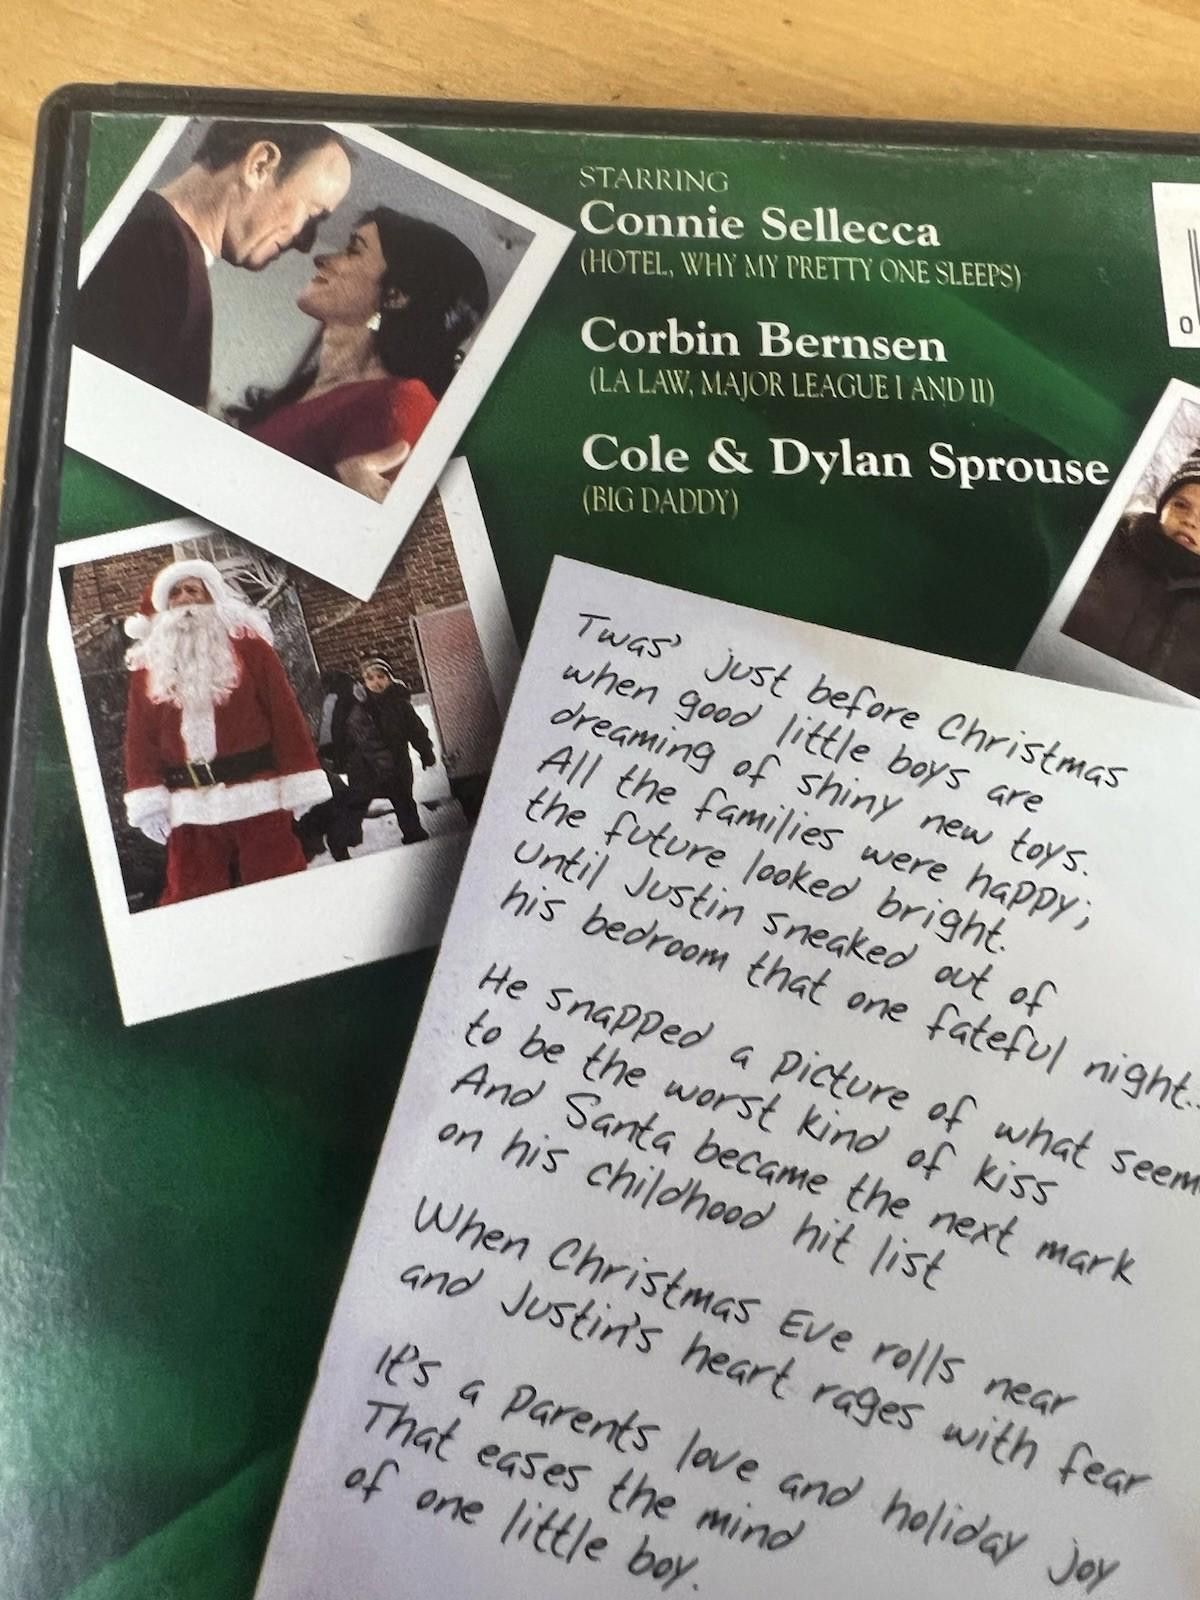 STARRING
Connie Sellecca
(HOTEL, WHY MY PRETTY ONE SLEEPS)
Corbin Bernsen
(LA LAW, MAJOR LEAGUE I AND II)
Cole & Dylan Sprouse
(BIG DADDY)
0
Twas' just before Christmas
when good little boys are
dreaming of shiny new toys.
All the families were happy;
the future looked bright.
Until Justin sneaked out of
his bedroom that one fateful night..
He snapped a picture of what seem
to be the worst kind of kiss
And Santa became the next mark
on his childhood hit list
When Christmas Eve rolls near
and Justin's heart rages with fear
It's a parents love and holiday joy
That eases the mind
of one little boy.